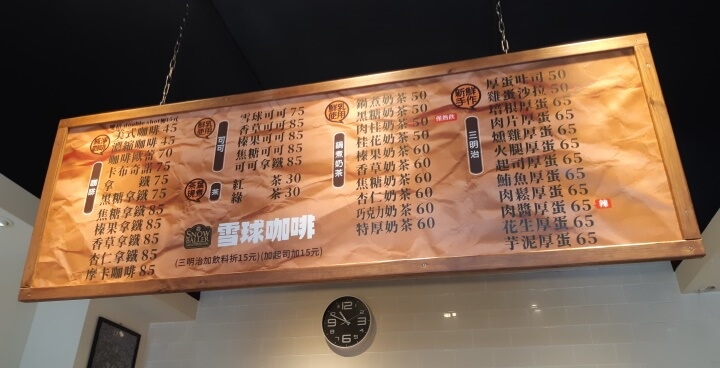 咖啡
美式咖啡 45
濃縮咖啡 45
咖啡歐蕾 70
卡布奇諾 75
拿鐵 75
黑糖拿鐵 85
焦糖拿鐵 85
榛果拿鐵 85
香草拿鐵 85
杏仁拿鐵 85
摩卡咖啡 85
鮮乳使用
可可
雪球可可 75
香草可可 85
榛果可可 85
焦糖可可 85
可可拿鐵 85
茶
紅茶 30
綠茶 30
SNOW BALLER
雪球咖啡
(三明治加飲料折15元)(加起司加15元)
鮮乳使用
鍋煮奶茶
鍋煮奶茶 50
黑糖奶茶 60
肉桂奶茶 60
桂花奶茶 60
榛果奶茶 60
香草奶茶 60
焦糖奶茶 60
杏仁奶茶 60
巧克力奶茶 60
特厚奶茶 60
新鮮手作
三明治
厚蛋吐司 50
雞蛋沙拉 50
培根厚蛋 65
肉片厚蛋 65
燻雞厚蛋 65
火腿厚蛋 65
起司厚蛋 65
鮪魚厚蛋 65
肉鬆厚蛋 65
肉醬厚蛋 65 辣
花生厚蛋 65
芋泥厚蛋 65